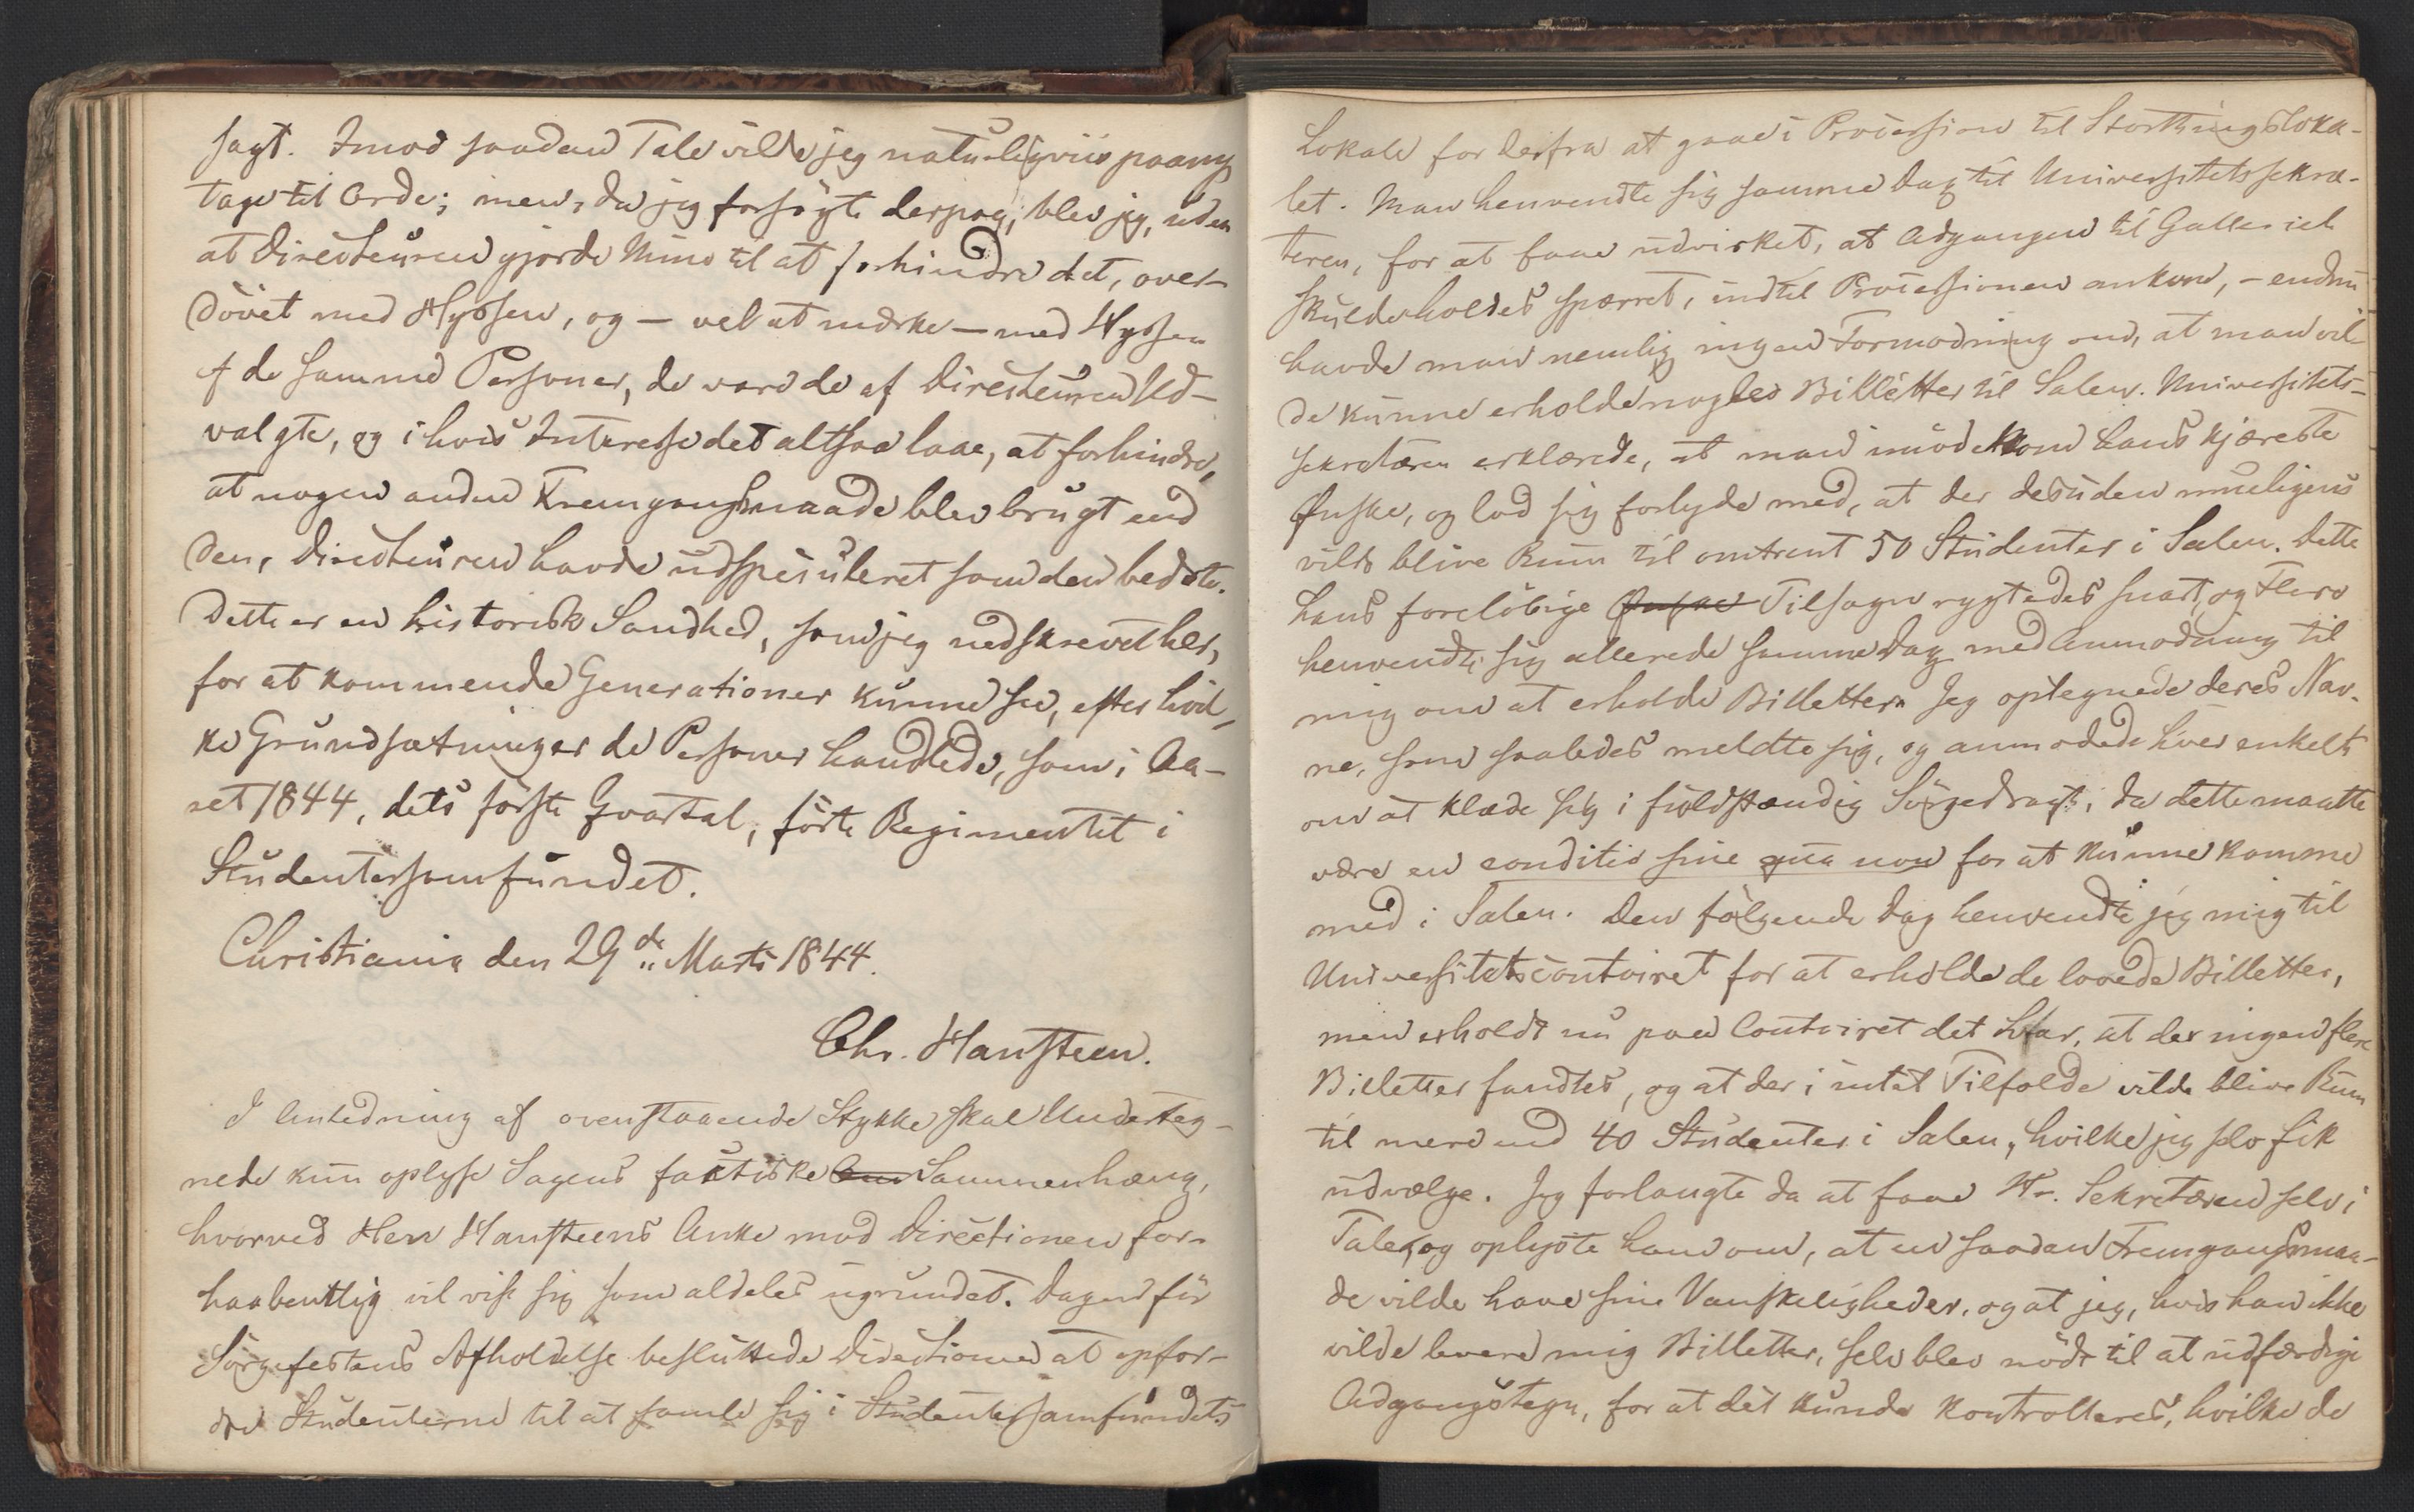 sagt. Imod saadan Tale vilde jeg naturligviis paany
tage til Orde; men, da jeg forsøgte derpaa, blev jeg, uden
at Directeuren gjorde Mine til at forhindre det, over-
døvet med Hyssen, og – vel at mærke – med Hyssen
af de samme Personer, de vare de af Directeuren Ud-
valgte, og i hvis Interesse det altsaa laae, at forhindre,
at nogen anden Fremgangsmaade blev brugt end
den, Directeuren havde udspeculeret som den bedste.
Dette er en historisk Sandhed, som jeg nedskrevet her,
for at kommende Generationer kunne see, efter hvil-
ke Grundsætninger de Personer handlede, som i Aa-
ret 1844, dets første Qvartal, førte Regimentet i
Studentersamfundet.
Christiania den 29de Marts 1844.
Chr. Hansteen.
I Anledning af ovenstaaende Stykke skal Underteg-
nede kun oplyse Sagens factiske Sammenhæng,
hvorved Herr Hansteens Anke mod Directionen for-
haabentlig vil vise sig som aldeles ugrundet. Dagen før
Sørgefestens Afholdelse besluttede Directionen at opfor-
dre Studenterne til at samle sig i Studentersamfundets
Lokale for derfra at gaae i Procession til Storthingsloka-
let. Man henvendte sig samme Dag til Universitetssekre-
teren, for at faae udvirket, at Adgangen til Galleriet
skulde holdes spærret, indtil Processionen ankom, – endnu
havde man nemlig ingen Formodning om, at man vil-
de kunne erholde nogle Billetter til Salen. Universitets-
sekretæren erklærede, at man imødekom hans kjæreste
Ønske, og lod sig forlyde med, at der desuden mueligens
vilde blive Rum til omtrent 50 Studenter i Salen. Dette
hans foreløbige Ønske Tilsagn rygtedes snart, og Flere
henvendte sig allerede samme Dag med Anmodning til
mig om at erholde Billetter. Jeg optegnede deres Nav-
ne, som saaledes meldte sig, og anmodede hver enkelt
om at klæde sig i fuldstændig Sørgedragt, da dette maatte
være en conditio sine qua non for at kunne komme
med i Salen. Den følgende Dag henvendte jeg mig til
Universitetscontoiret for at erholde de lovede Billetter,
men erholdt nu paa Contoiret det Svar, at der ingen flere
Billetter fandtes, og at der i intet Tilfælde vilde blive Rum
til mere end 40 Studenter i Salen, hvilke jeg selv fik
udvælge. Jeg forlangte da at faae Hr. Sekretæren selv i
Tale, og oplyste ham om, at en saadan Fremgangsmaa-
de vilde have sine Vanskeligheder, og at jeg, hvis han ikke
vilde levere mig Billetter, selv blev nødt til at udfærdige
Adgangstegn, for at det kunde kontrolleres, hvilke de